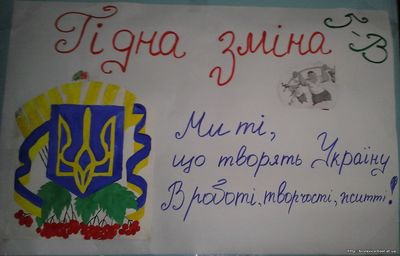 Гідна зміна
5-В
Ми ті,
що творять Україну
В роботі, творчості, житті!